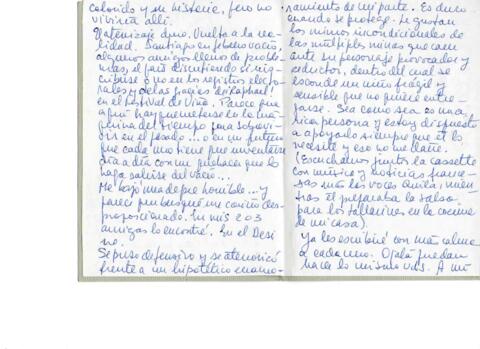 colorido y su historia, pero no
viviría allí.
Y aterrizaje duro. Vuelta a la rea-
lidad. Santiago en febrero vacío,
algunos amigos llenos de proble-
mas, el país discutiendo si ins-
cribirse o no en los registros electo-
rales y de las de Raphael
en el Festival de Viña. Parece que
aquí hay que meterse en la má-
quina del tiempo para sobrevi-
vir en el pasado... o en un futuro
que cada uno tiene que inventarse
día a día con un que lo
haga salirse del vacío...
Me bajó una depre horrible... y
parece que busqué un cariño des-
proporcionado. En mis 2 o 3
amigos lo encontré. En el Desi
no.
Se puso defensivo y se aterrorizó
frente a un hipotético enamo-
ramiento de mi parte. Es duro
cuando se protege. Le gustan
los mimos incondicionales de
las múltiples minas que caen
ante su personaje provocador y
seductor, dentro del cual se
esconde un niño frágil y
sensible que no quiere entre-
garse. Sea como sea es una
rica persona y estoy dispuesta
a apoyarlo siempre que él lo
necesite y eso no me dañe.
(Escuchamos juntos la cassette
con música y noticias
más las voces, mien-
tras él preparaba la salsa
para los tallarines en la cocina
de mi casa).
Ya les escribiré con más calma
a cada uno. Ojalá puedan
hacer lo mismo Uds. A mí